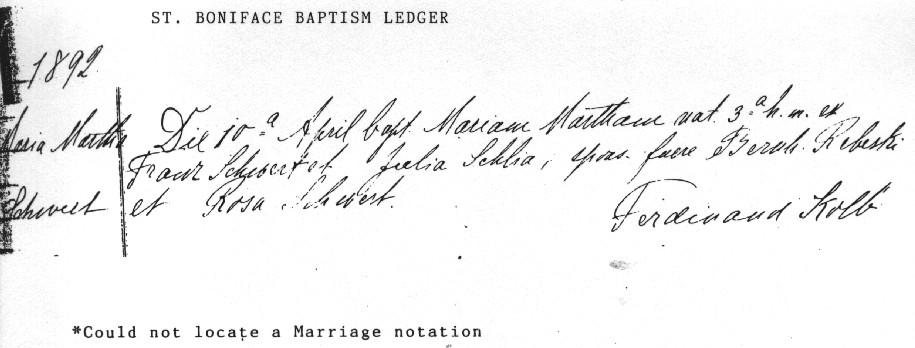 ST. BONIFACE BAPTISM LEDGER
1892
Maria Martha
Schwert
Die 10ª April bapt. Mariam Martham nat. 3ª h. m. ex
Franz Schwert et Julia Schlia, spons. fuere Bernh. Rebeski
et Rosa Schwert.
Ferdinand Kolb
*Could not locate a Marriage notation